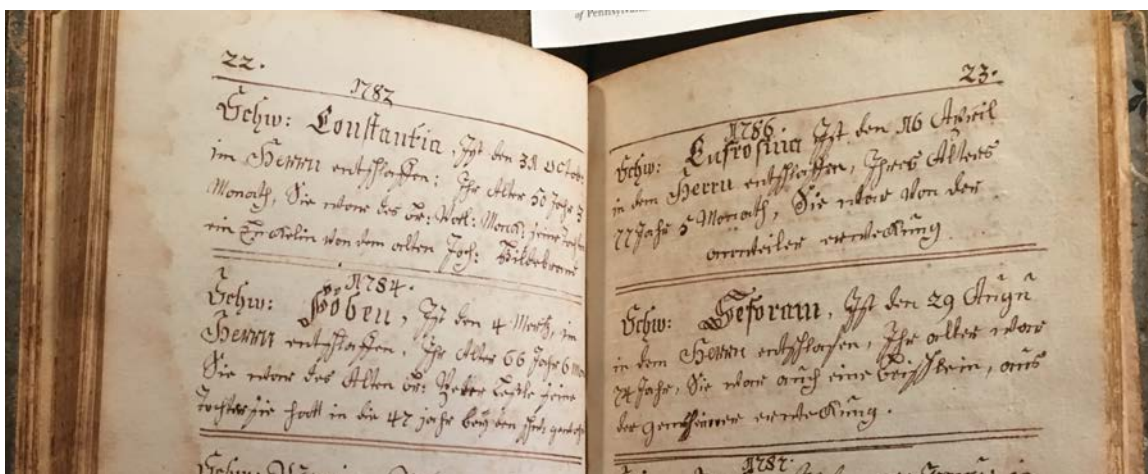 of Pennsylvania
22.
1782
Schw: Constantia, Ist den 31 October
im Herrn entschlaffen; Ihr Alter 50 Jahr 3
Monath, Sie ware des br: seine Tochter
ein Enckelin von dem alten Joh: Hildebrand
1784.
Schw: Föben, Ist den 4 Mertz, im
Herrn entschlaffen, Ihr Alter 66 Jahr 6 Mon
Sie ware des Alten br: seine
Tochter sie hatt in die 47 jahr bey den
Schw:
23.
1786.
Schw: Eufrosina Ist den 16 Aprill
in dem Herrn entschlaffen, Ihres Alters
77 Jahr 5 Monath, Sie ware von der
erweckung
Schw: Seforam, Ist den 29 Augu
in dem Herrn entschlafen, Ihr alter war
74 Jahr, Sie war auch eine aus
der erweckung.
1787.